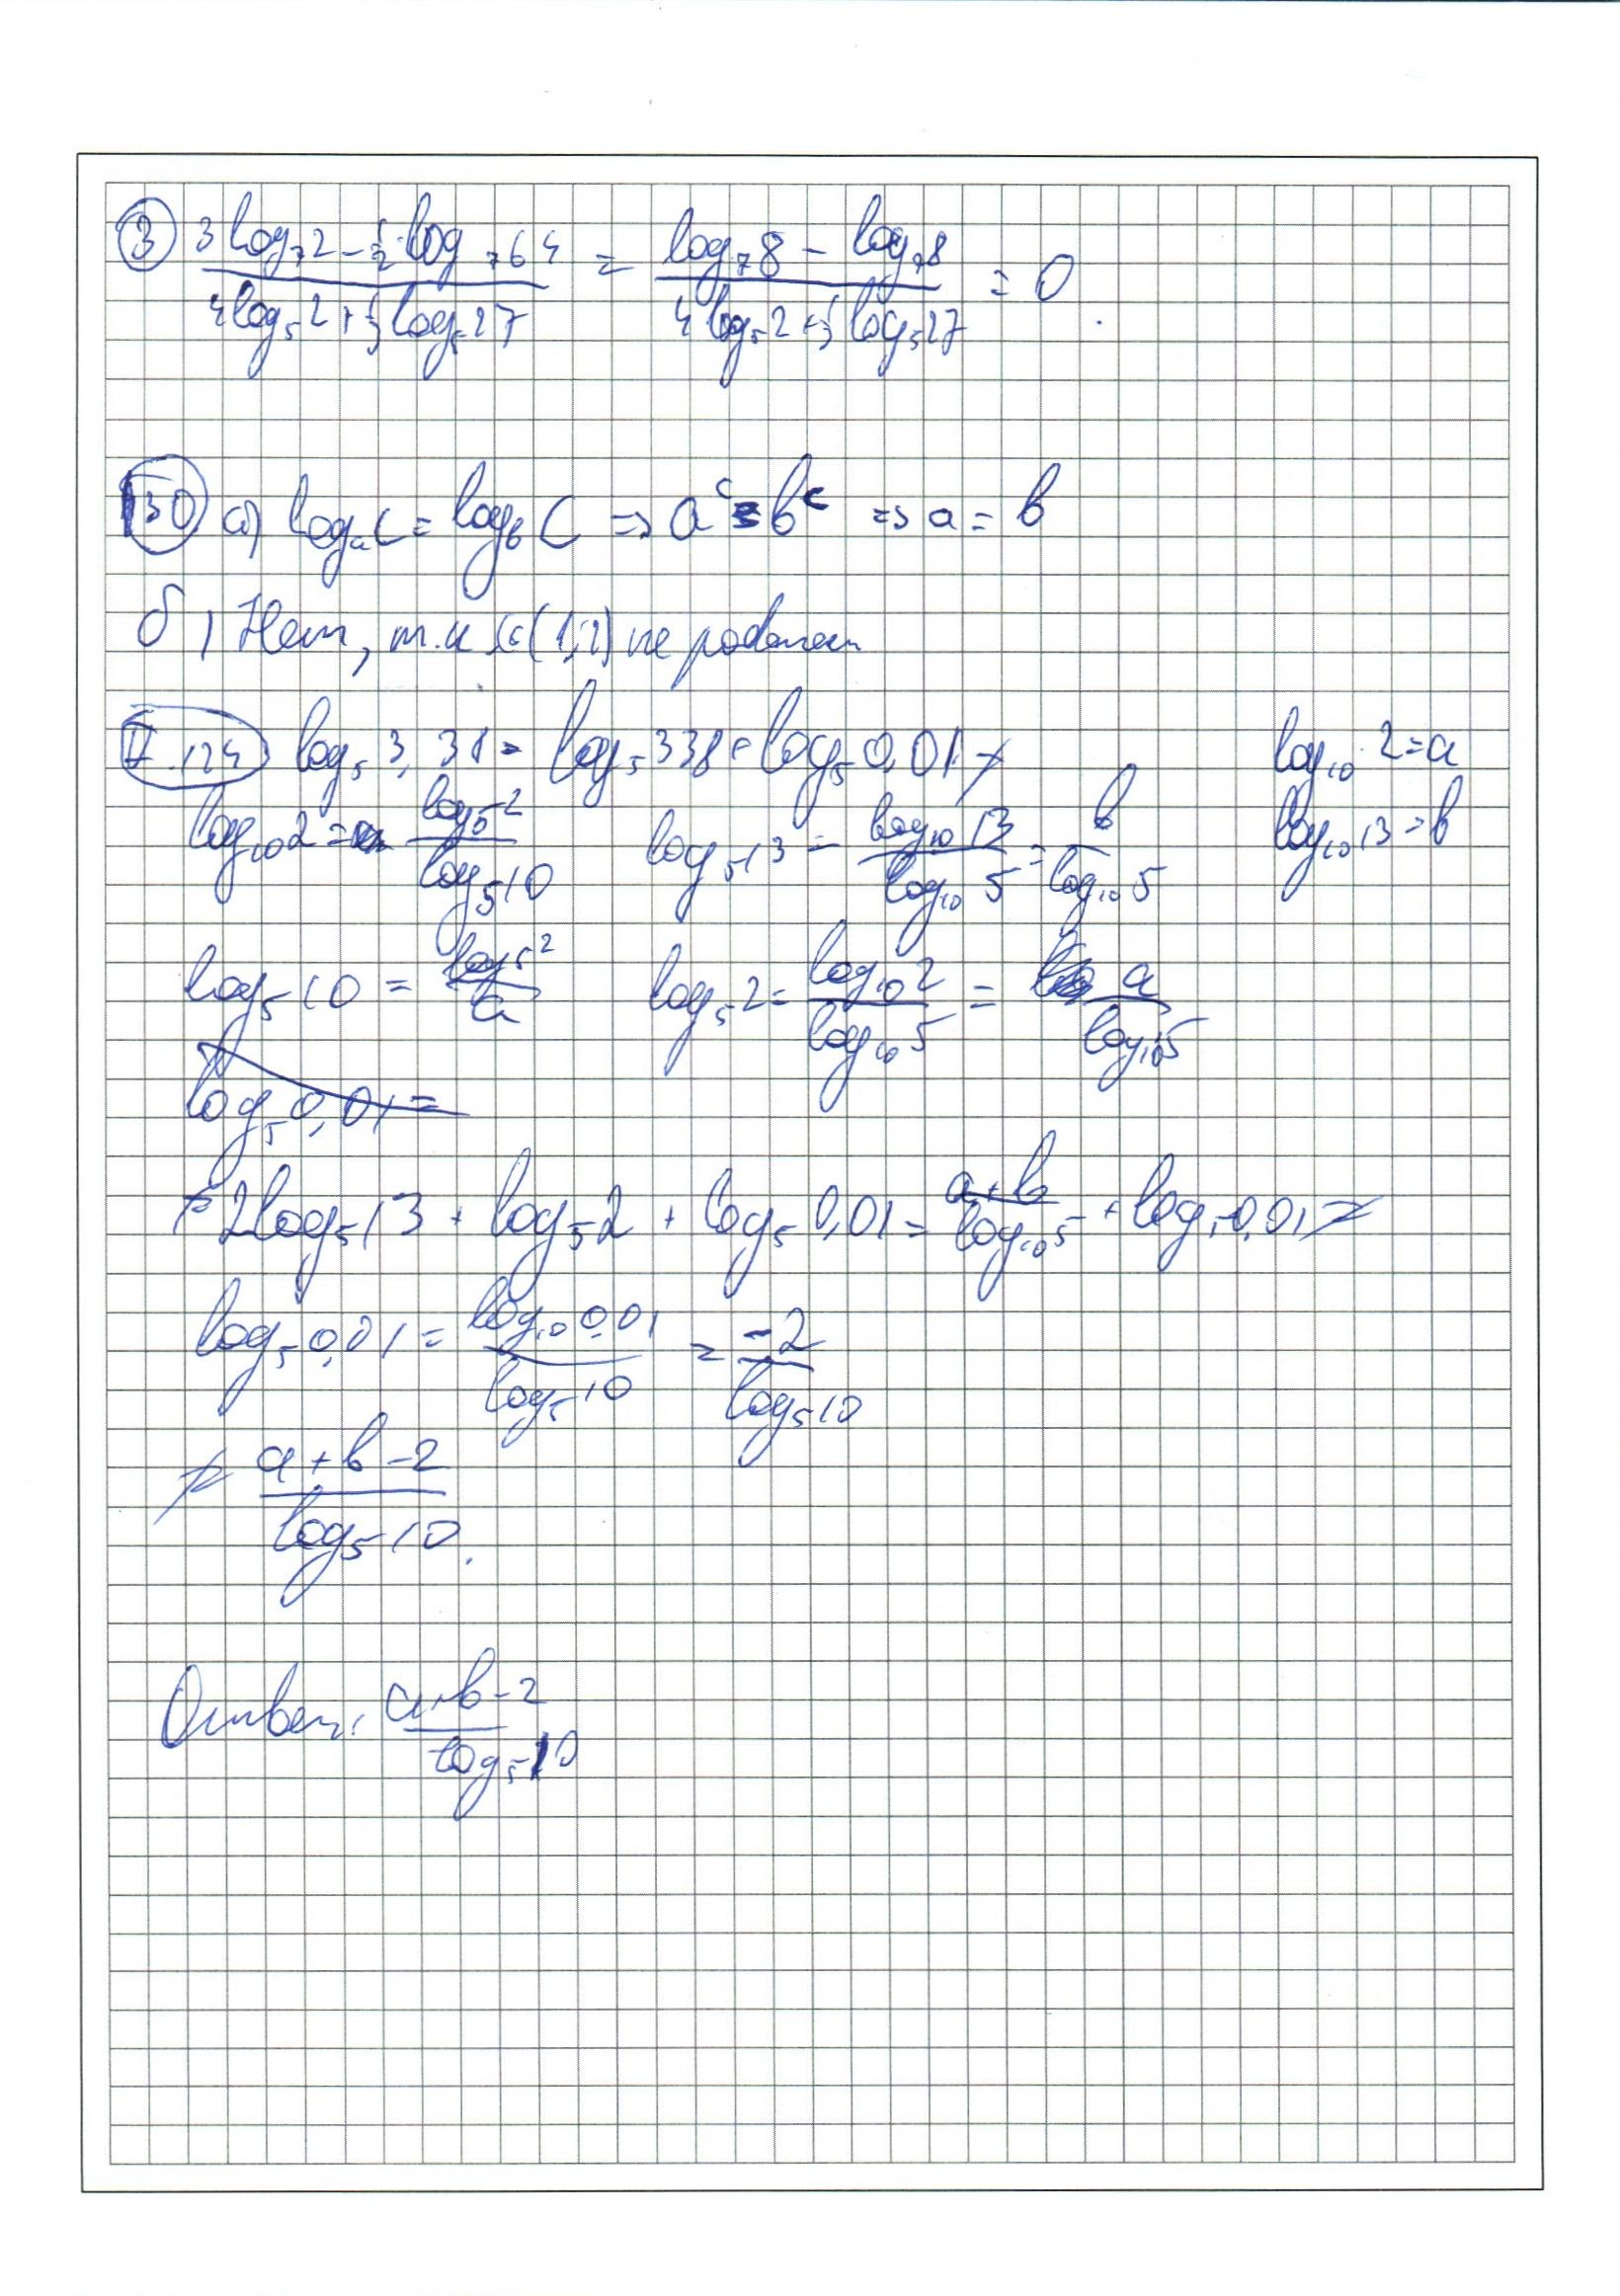 ③ (3log₇2 - 1/2 log₇64)/(4log₅2 + 1/3 log₅27) = (log₇8 - log₇8)/(4log₅2 + 1/3 log₅27) = 0.
130 а) logₐC = log_b C => a^c = b^c => a = b
б) Нет, т.к
II.124 log₅3,38 = log₅338 + log₅0,01 =
log₁₀2 = a
log₁₀2 = log₅2/log₅10 log₅13 = log₁₀13/log₁₀5 = b/log₁₀5
log₁₀13 = b
log₅10 = log₅2/a log₅2 = log₁₀2/log₁₀5 = a/log₁₀5
log₅0,01 =
= 2log₅13 + log₅2 + log₅0,01 = (a+b)/log₁₀5 + log₅0,01 =
log₅0,01 = log₁₀0,01/log₅10 = -2/log₅10
= (a+b-2)/log₅10.
Ответ: (a+b-2)/log₅10